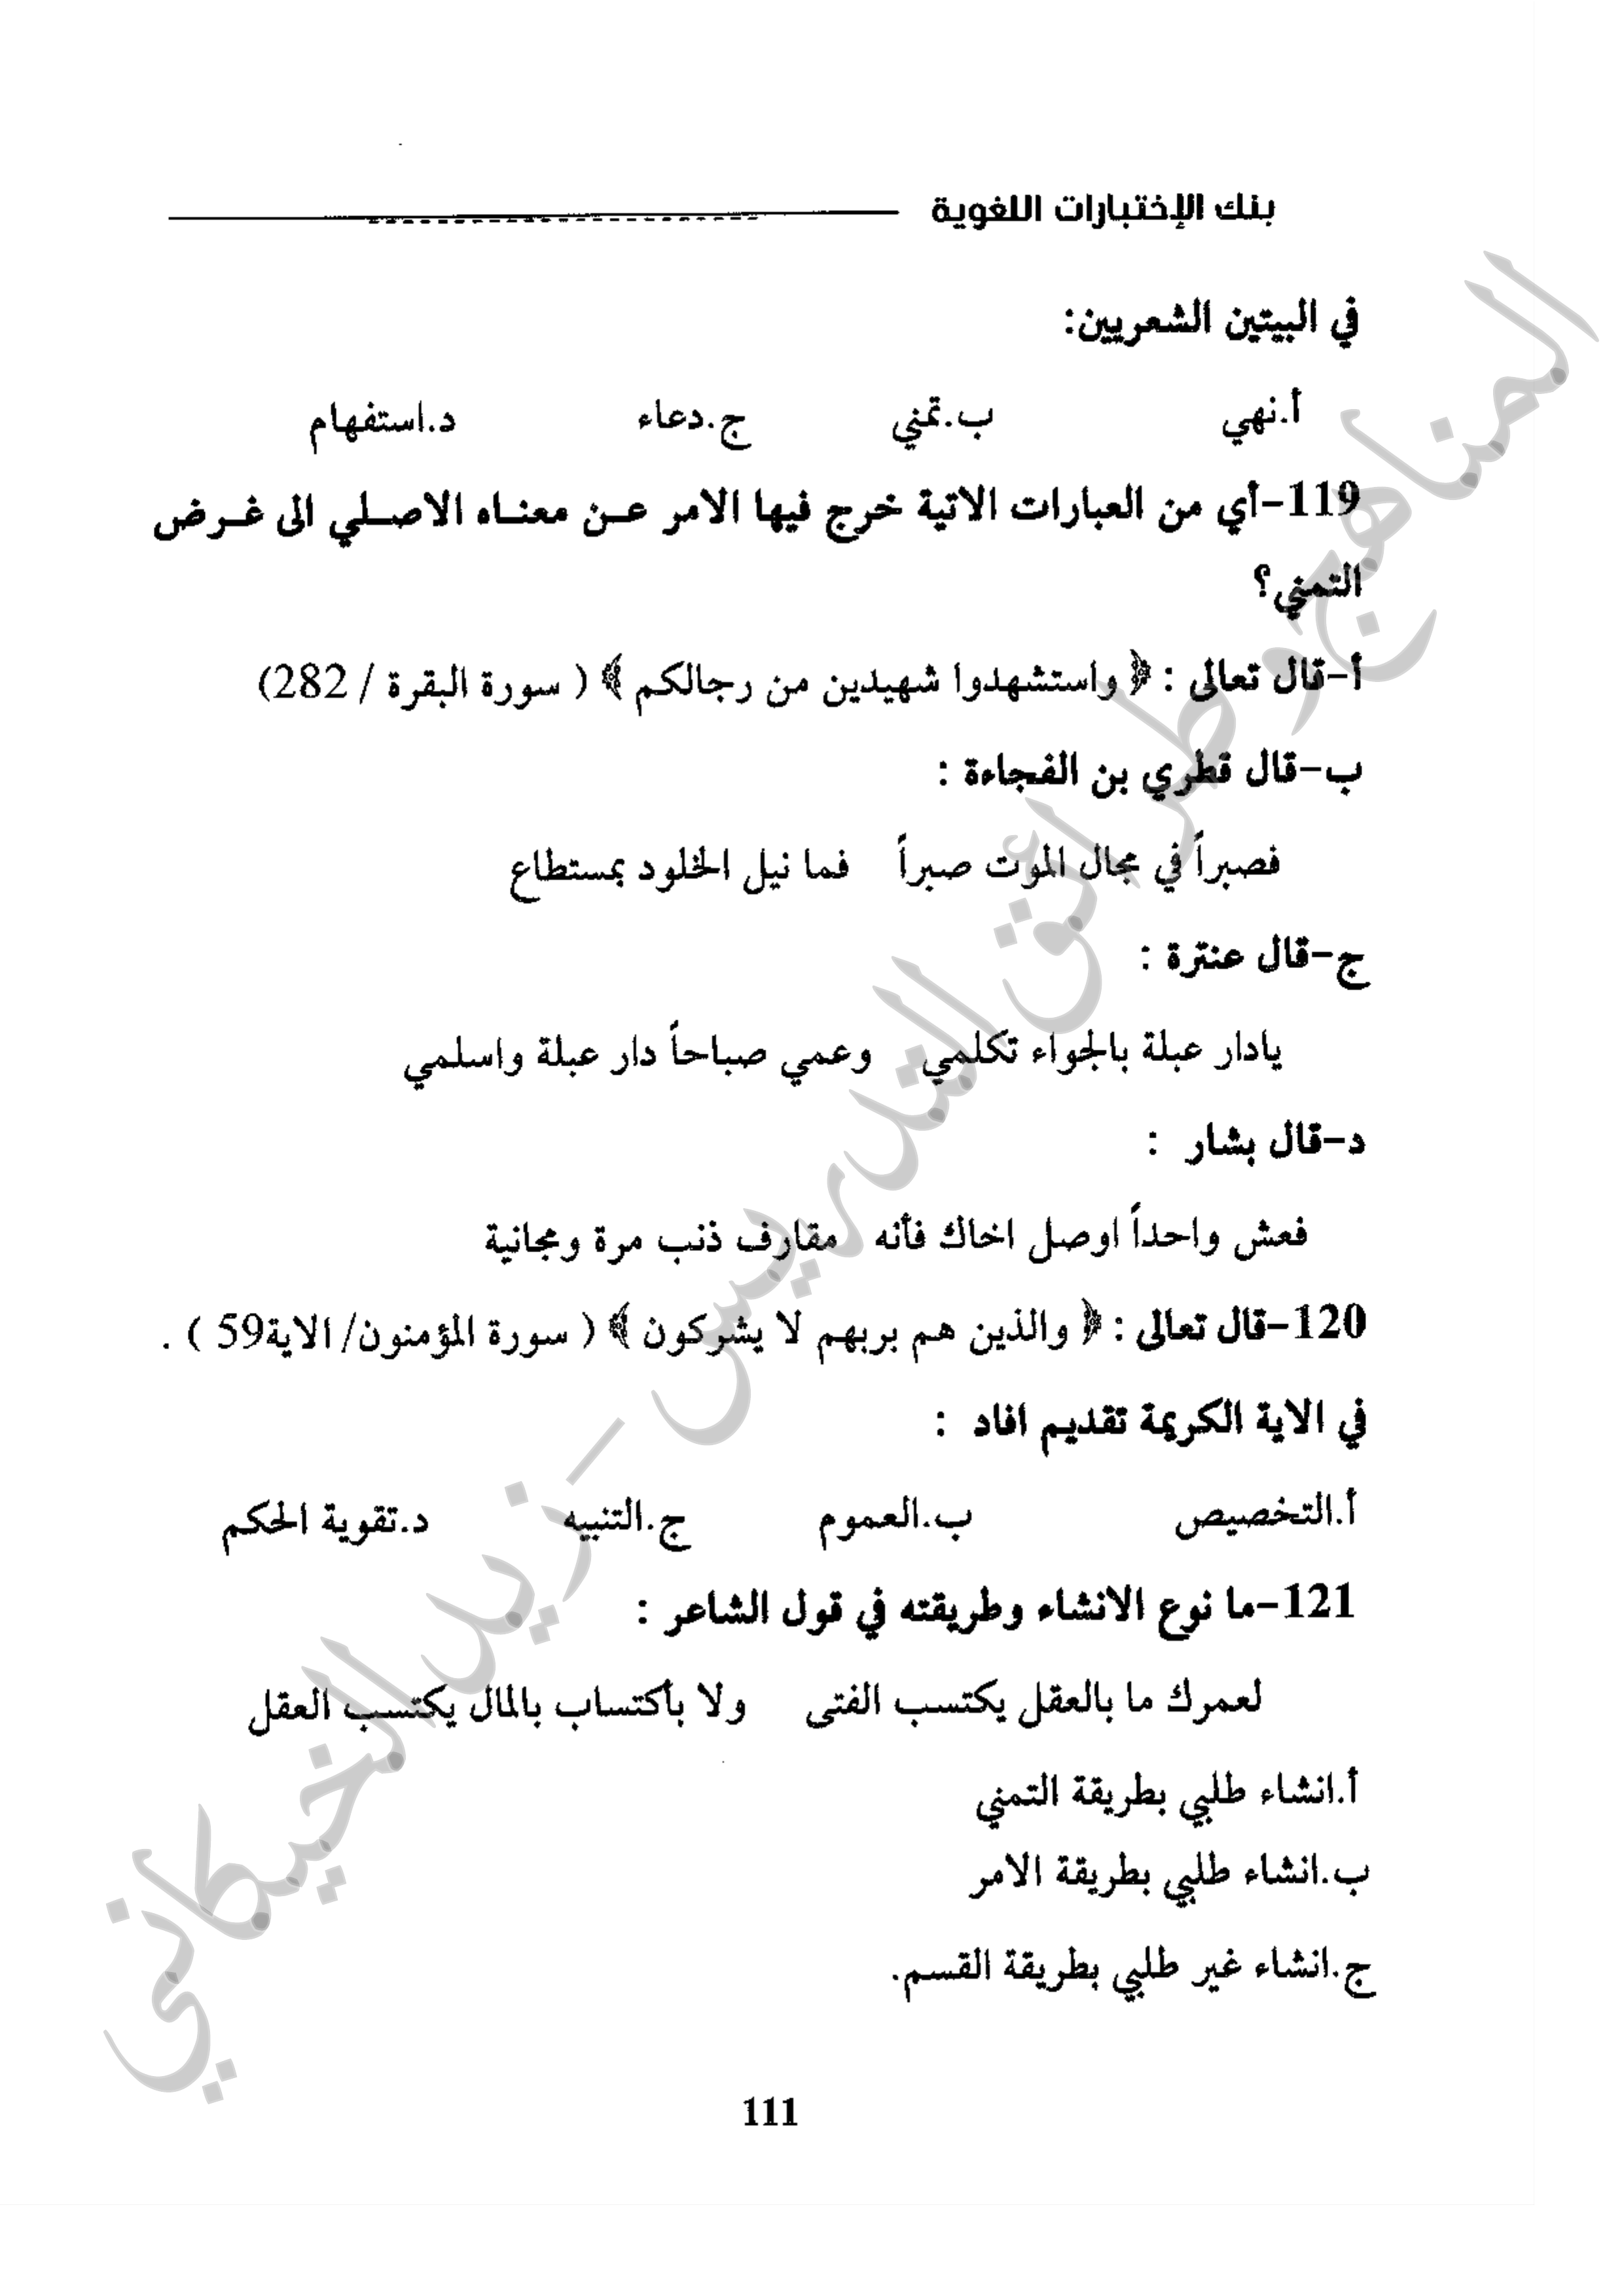 بنك الإختبارات اللغوية
في البيتين الشعريين:
أ.نهي ب.تمني ج.دعاء د.استفهام
119-أي من العبارات الاتية خرج فيها الامر عن معناه الاصلي الى غرض
التمني؟
أ-قال تعالى : ﴿ واستشهدوا شهيدين من رجالكم ﴾ ( سورة البقرة / 282)
ب-قال قطري بن الفجاءة :
فصبراً في مجال الموت صبراً فما نيل الخلود بمستطاع
ج-قال عنترة :
يادار عبلة بالجواء تكلمي وعمي صباحاً دار عبلة واسلمي
د-قال بشار :
فعش واحداً اوصل اخاك فأنه مقارف ذنب مرة ومجانية
120-قال تعالى : ﴿ والذين هم بربهم لا يشركون ﴾ ( سورة المؤمنون/ الاية59 ) .
في الاية الكريمة تقديم افاد :
أ.التخصيص ب.العموم ج.التنبيه د.تقوية الحكم
121-ما نوع الانشاء وطريقته في قول الشاعر :
لعمرك ما بالعقل يكتسب الفتى ولا بأكتساب بالمال يكتسب العقل
أ.انشاء طلبي بطريقة التمني
ب.انشاء طلبي بطريقة الامر
ج.انشاء غير طلبي بطريقة القسم.
111
المناهج وطرائق التدريس - زيد الخيكاني